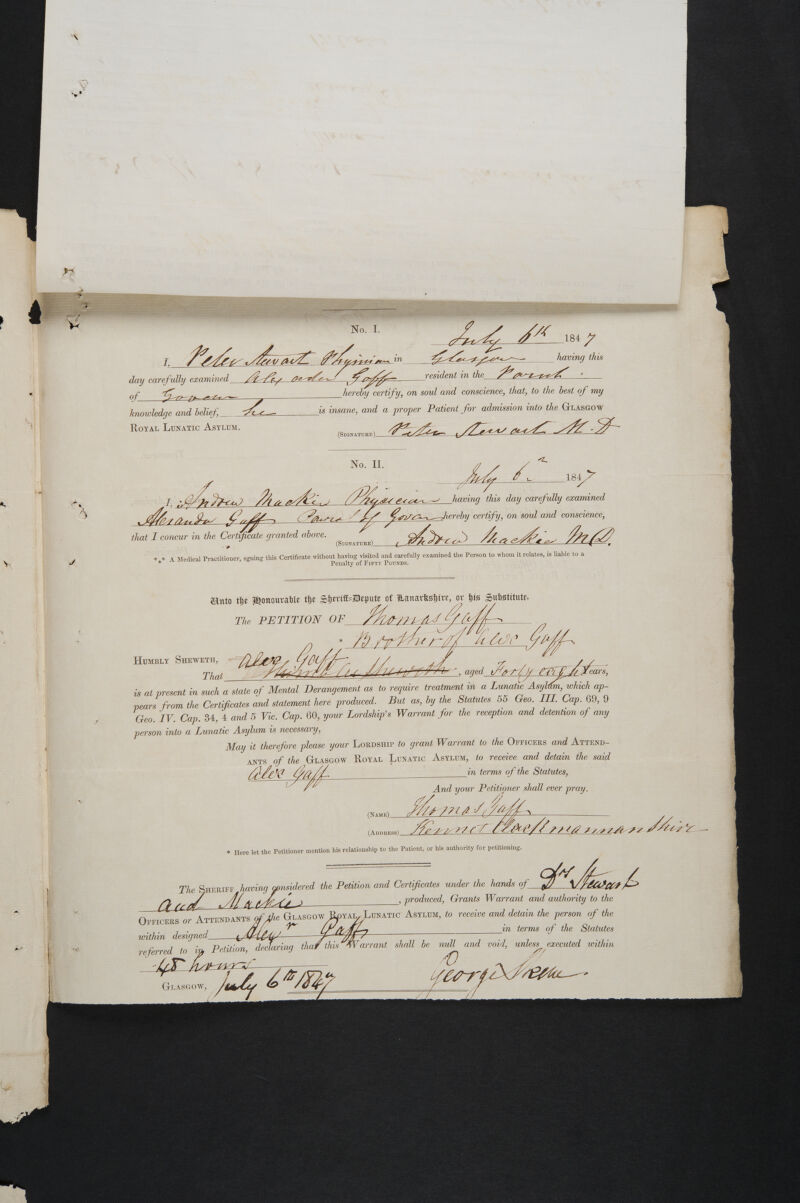 No. I.
July 6th 1847
I, Peter Stewart Physician in Glasgow having this
day carefully examined Alexander Gaff resident in the Parish
of Govan hereby certify, on soul and conscience, that, to the best of my
knowledge and belief, he is insane, and a proper Patient for admission into the Glasgow
Royal Lunatic Asylum.
(Signature) Peter Stewart M.D
No. II.
July 6 1847
I, Andrew Mackie Physician having this day carefully examined
Alexander Gaff Parish of Govan hereby certify, on soul and conscience,
that I concur in the Certificate granted above.
(Signature) Andrew Mackie M.D.
*** A Medical Practitioner, signing this Certificate without having visited and carefully examined the Person to whom it relates, is liable to a
Penalty of Fifty Pounds.
Unto the Honourable the Sheriff-Depute of Lanarkshire, or his Substitute.
The PETITION OF Thomas Gaff
* Brother of Alex Gaff
Humbly Sheweth,
That Alex Gaff, aged Forty eight Years,
is at present in such a state of Mental Derangement as to require treatment in a Lunatic Asylum, which ap-
pears from the Certificates and statement here produced. But as, by the Statutes 55 Geo. III. Cap. 69, 9
Geo. IV. Cap. 34, 4 and 5 Vic. Cap. 60, your Lordship's Warrant for the reception and detention of any
person into a Lunatic Asylum is necessary,
May it therefore please your Lordship to grant Warrant to the Officers and Attend-
ants of the Glasgow Royal Lunatic Asylum, to receive and detain the said
Alex Gaff in terms of the Statutes,
And your Petitioner shall ever pray.
(Name) Thomas Gaff
(Address) Kennet Clackmannanshire
* Here let the Petitioner mention his relationship to the Patient, or his authority for petitioning.
The Sheriff having considered the Petition and Certificates under the hands of Drs Stewart
and Mackie, produced, Grants Warrant and authority to the
Officers or Attendants of the Glasgow Royal Lunatic Asylum, to receive and detain the person of the
within designed Alexr Gaff in terms of the Statutes
referred to in Petition, declaring that this Warrant shall be null and void, unless executed within
48 hours
Glasgow, July 6th 1847 George Skene.